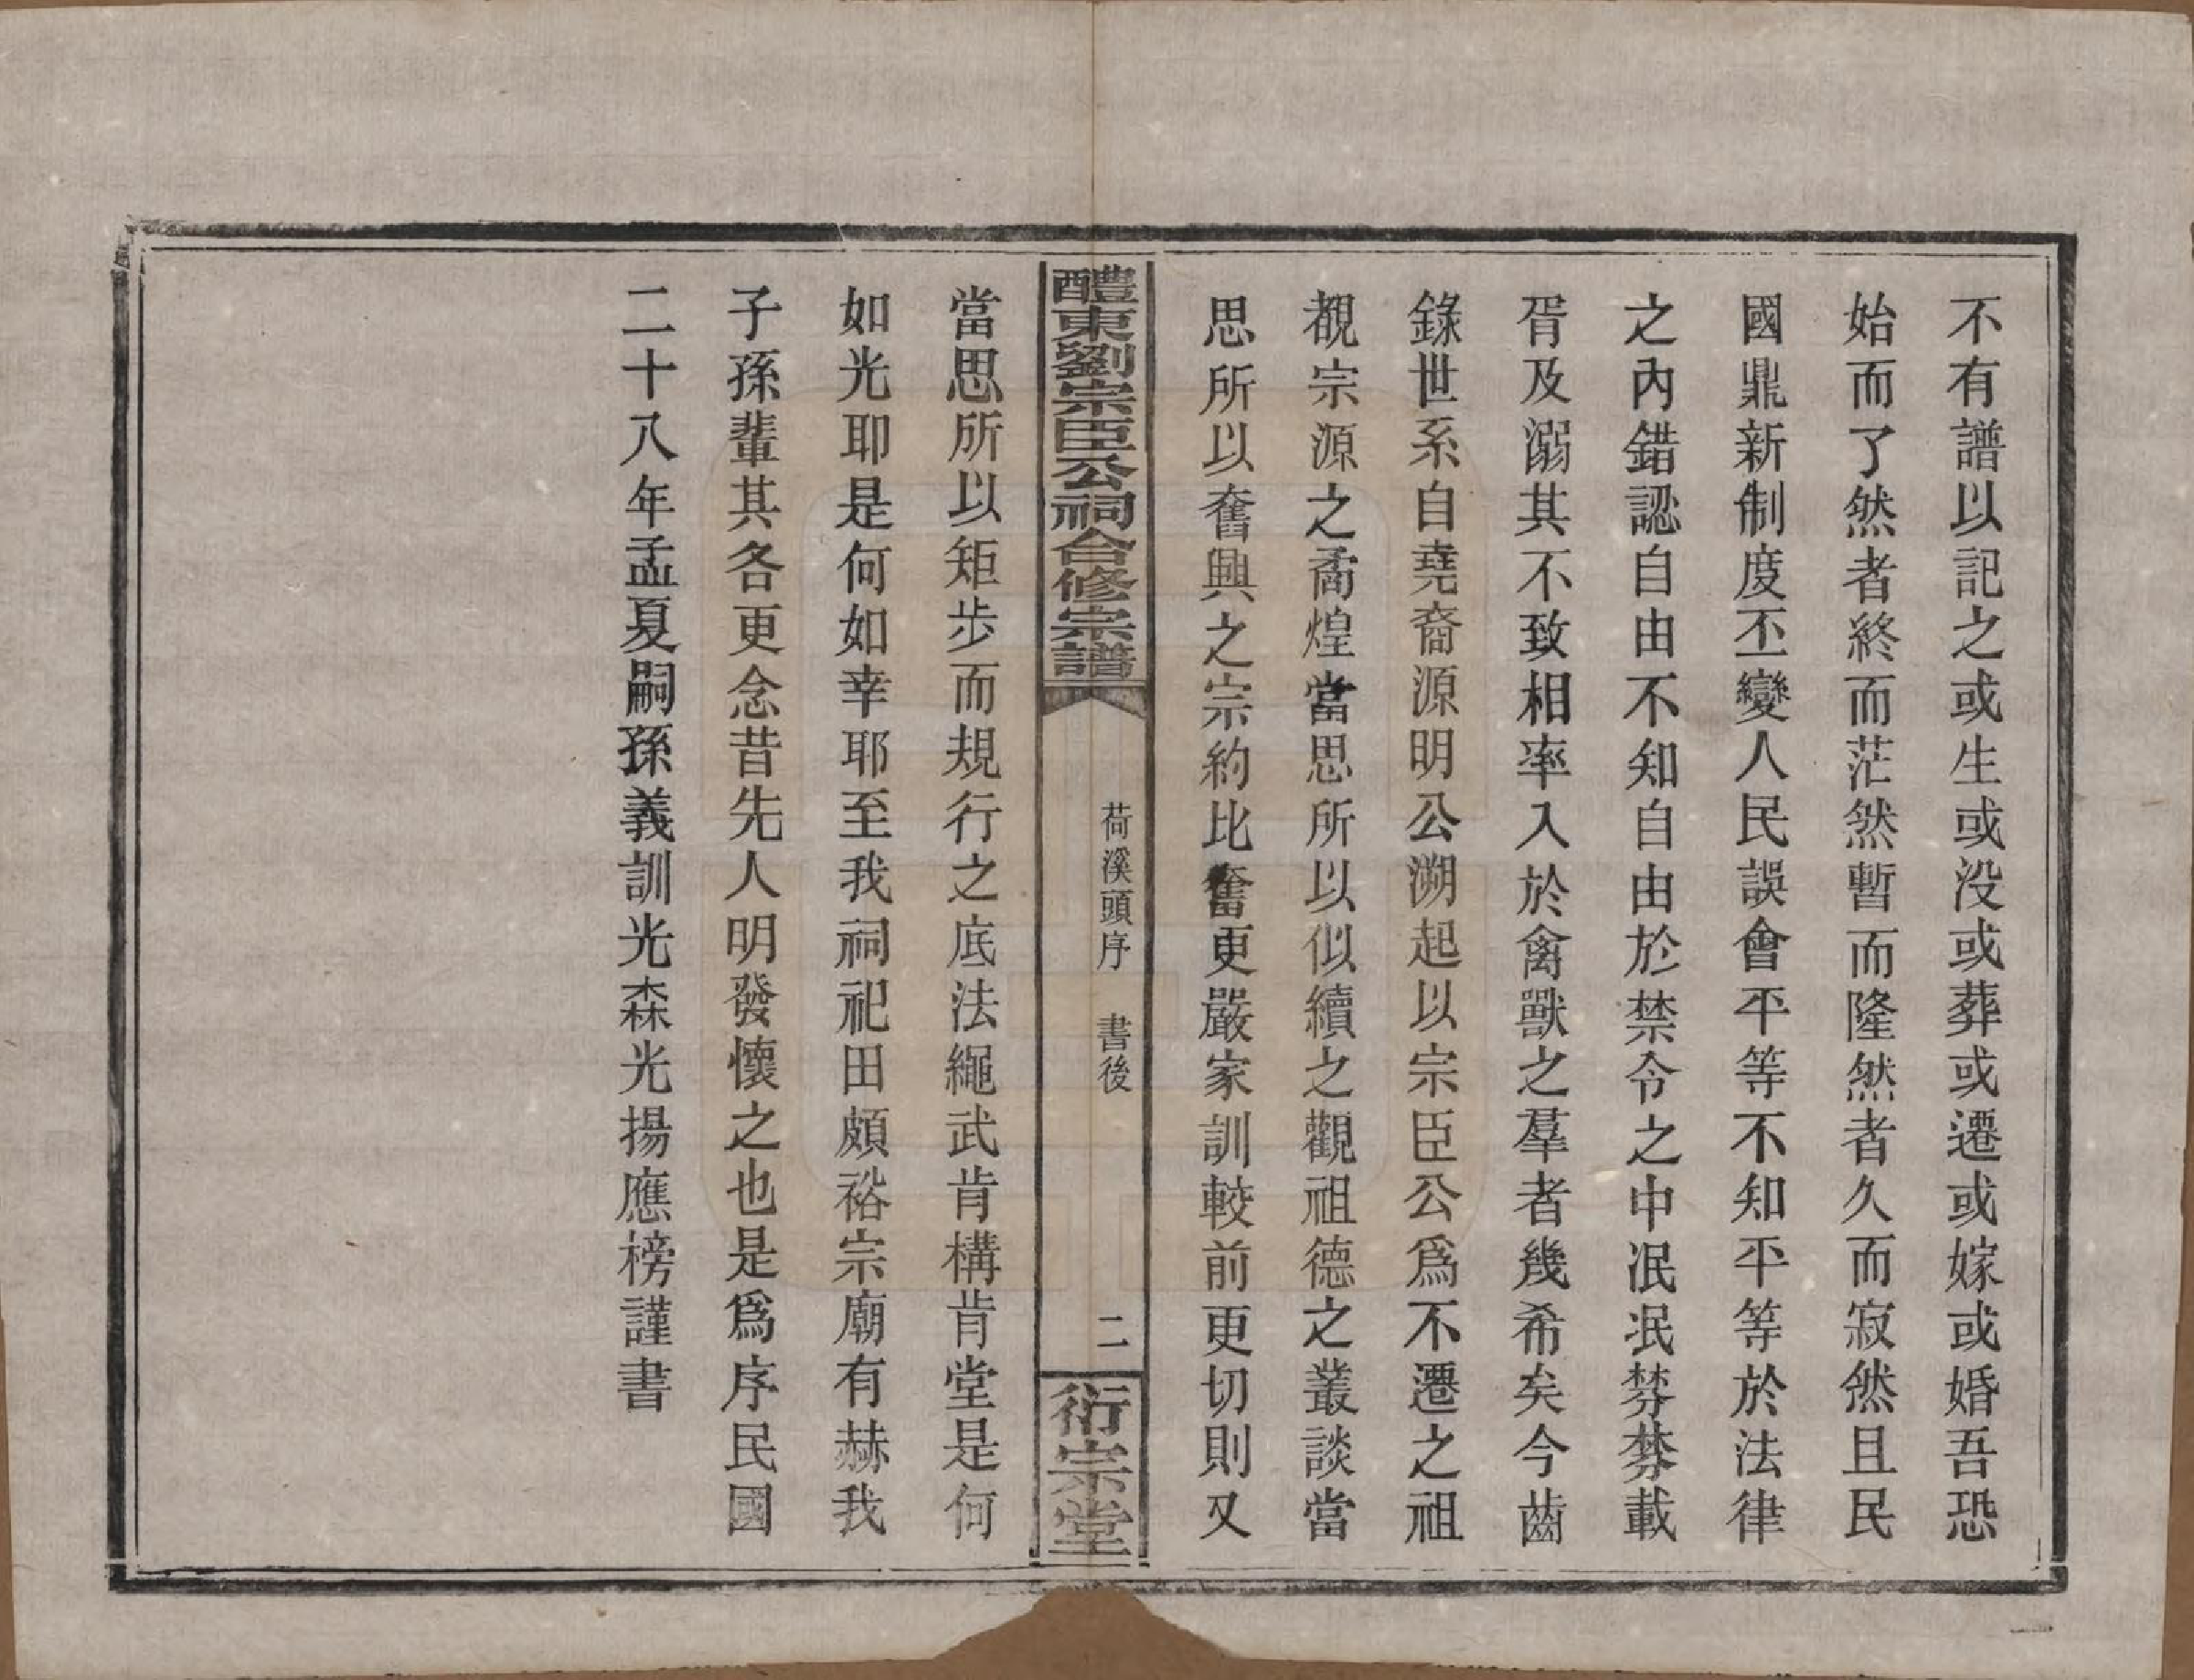 不有譜以記之或生或没或葬或遷或嫁或婚吾恐
始而了然者終而茫然暫而隆然者久而寂然且民
國鼎新制度丕變人民誤會平等不知平等於法律
之內錯認自由不知自由於禁令之中泯泯棼棼載
胥及溺其不致相率入於禽獸之羣者幾希矣今齒
錄世系自堯裔源明公溯起以宗臣公爲不遷之祖
覩宗源之矞煌當思所以似續之觀祖德之叢談當
思所以奮興之宗約比舊更嚴家訓較前更切則又
醴東劉宗臣公祠合修宗譜
荷溪頭序 書後
二
衍宗堂
當思所以矩步而規行之底法繩武肯構肯堂是何
如光耶是何如幸耶至我祠祀田頗裕宗廟有赫我
子孫輩其各更念昔先人明發懷之也是爲序民國
二十八年孟夏嗣孫義訓光森光揚應榜謹書